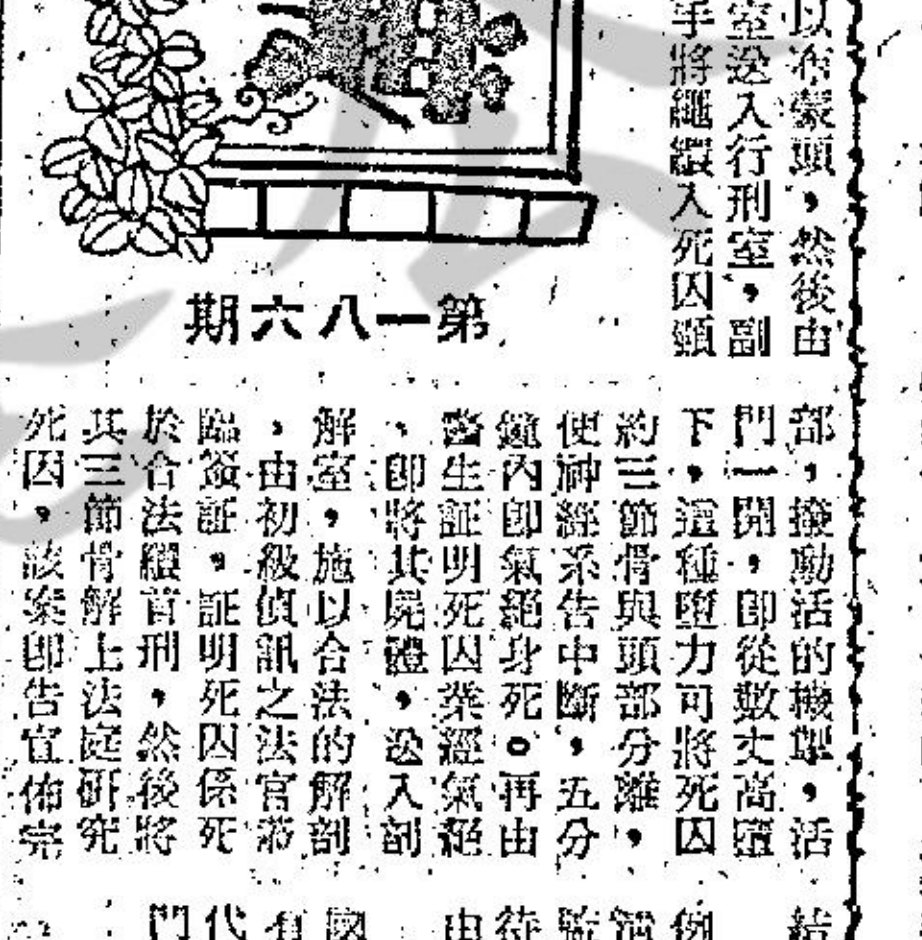 以布蒙頭，然後由
室送入行刑室，副
手將繩繯入死囚頸
第一八六期
部，撥動活的機掣，活
門一開，即從數丈高墮
下，這種墮力可將死囚
約三節骨與頭部分離，
使神經系告中斷，五分
鐘內即氣絕身死。再由
醫生証明死囚業經氣絕
、即將其屍體，送入剖
解室，施以合法的解剖
，由初級偵訊之法官蒞
臨簽証，証明死囚係死
於合法繯首刑，然後將
其三節骨解上法庭研究
死囚，該案即告宣佈完
結
例
待
由
國
有
代
門